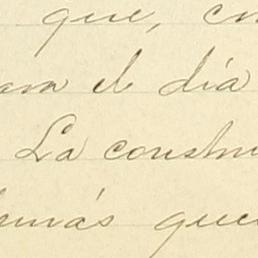 que, con
para el día
La constru
demás que